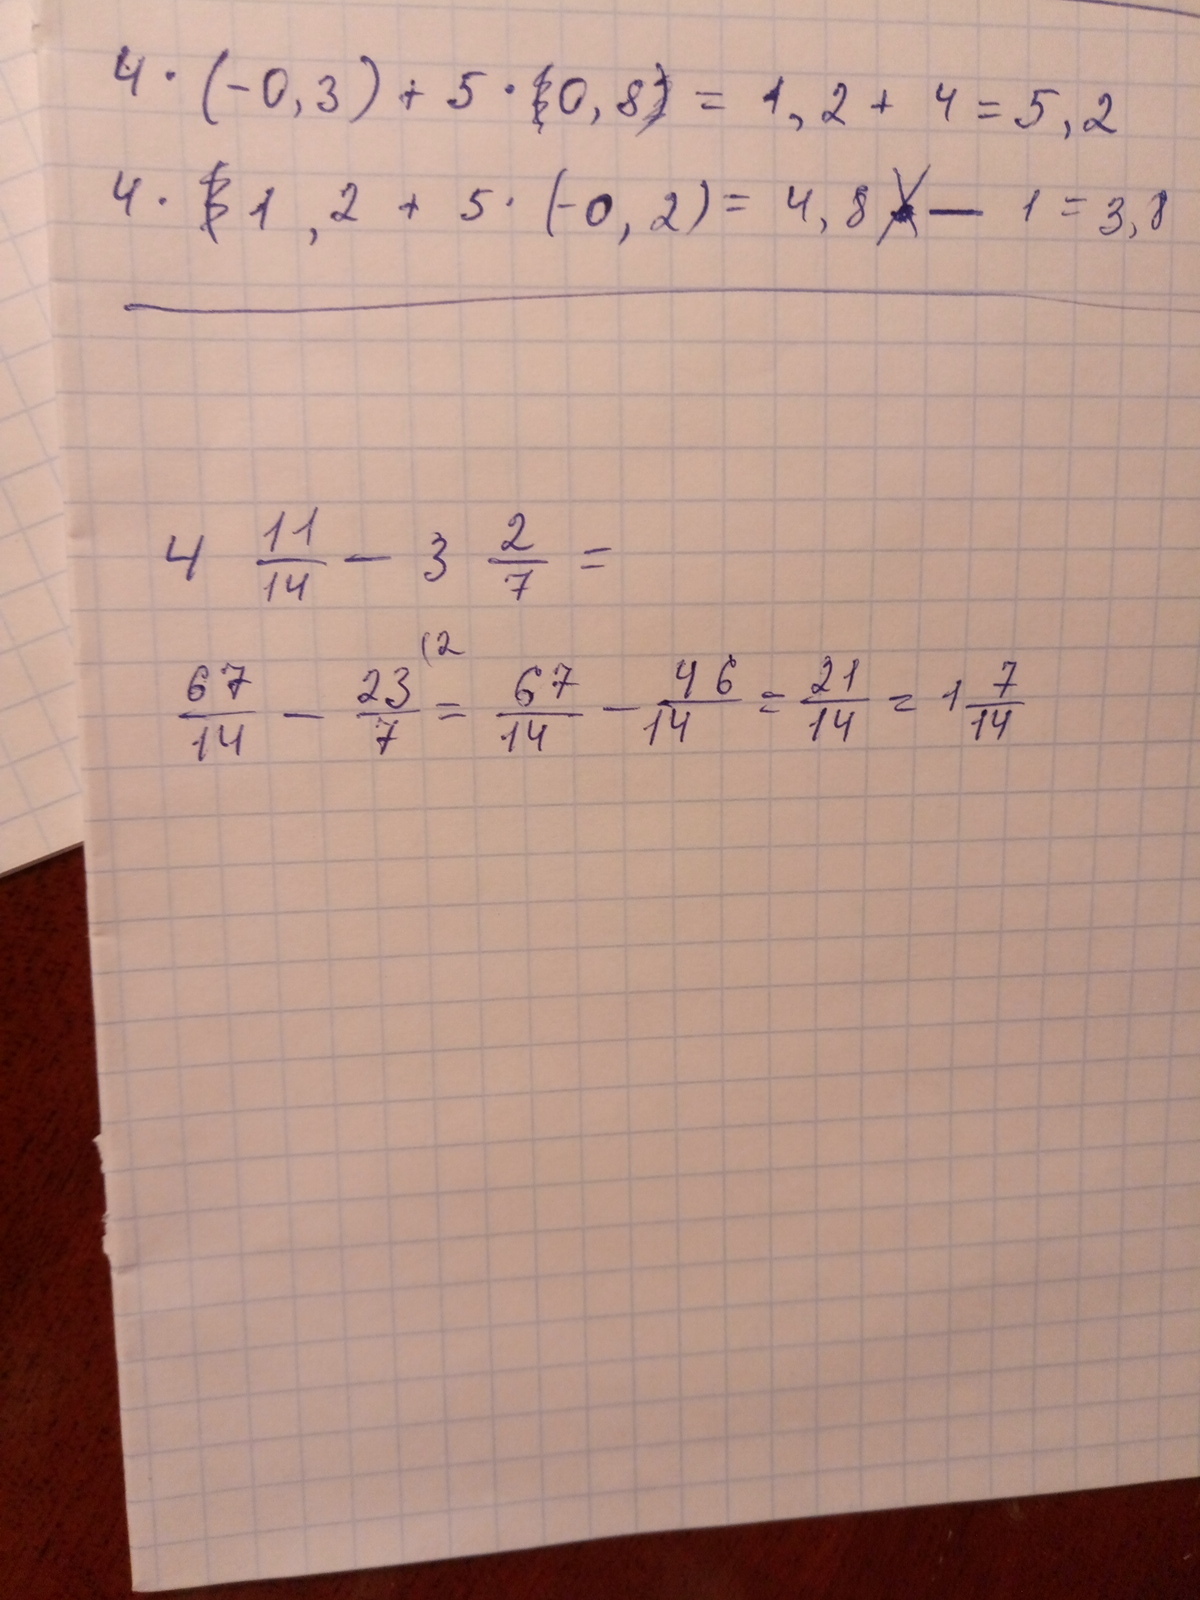 4 · (-0,3) + 5 · 0,8 = 1,2 + 4 = 5,2
4 · 1,2 + 5 · (-0,2) = 4,8 — 1 = 3,8
4 11/14 — 3 2/7 =
67/14 — 23/7 (2 = 67/14 — 46/14 = 21/14 = 1 7/14